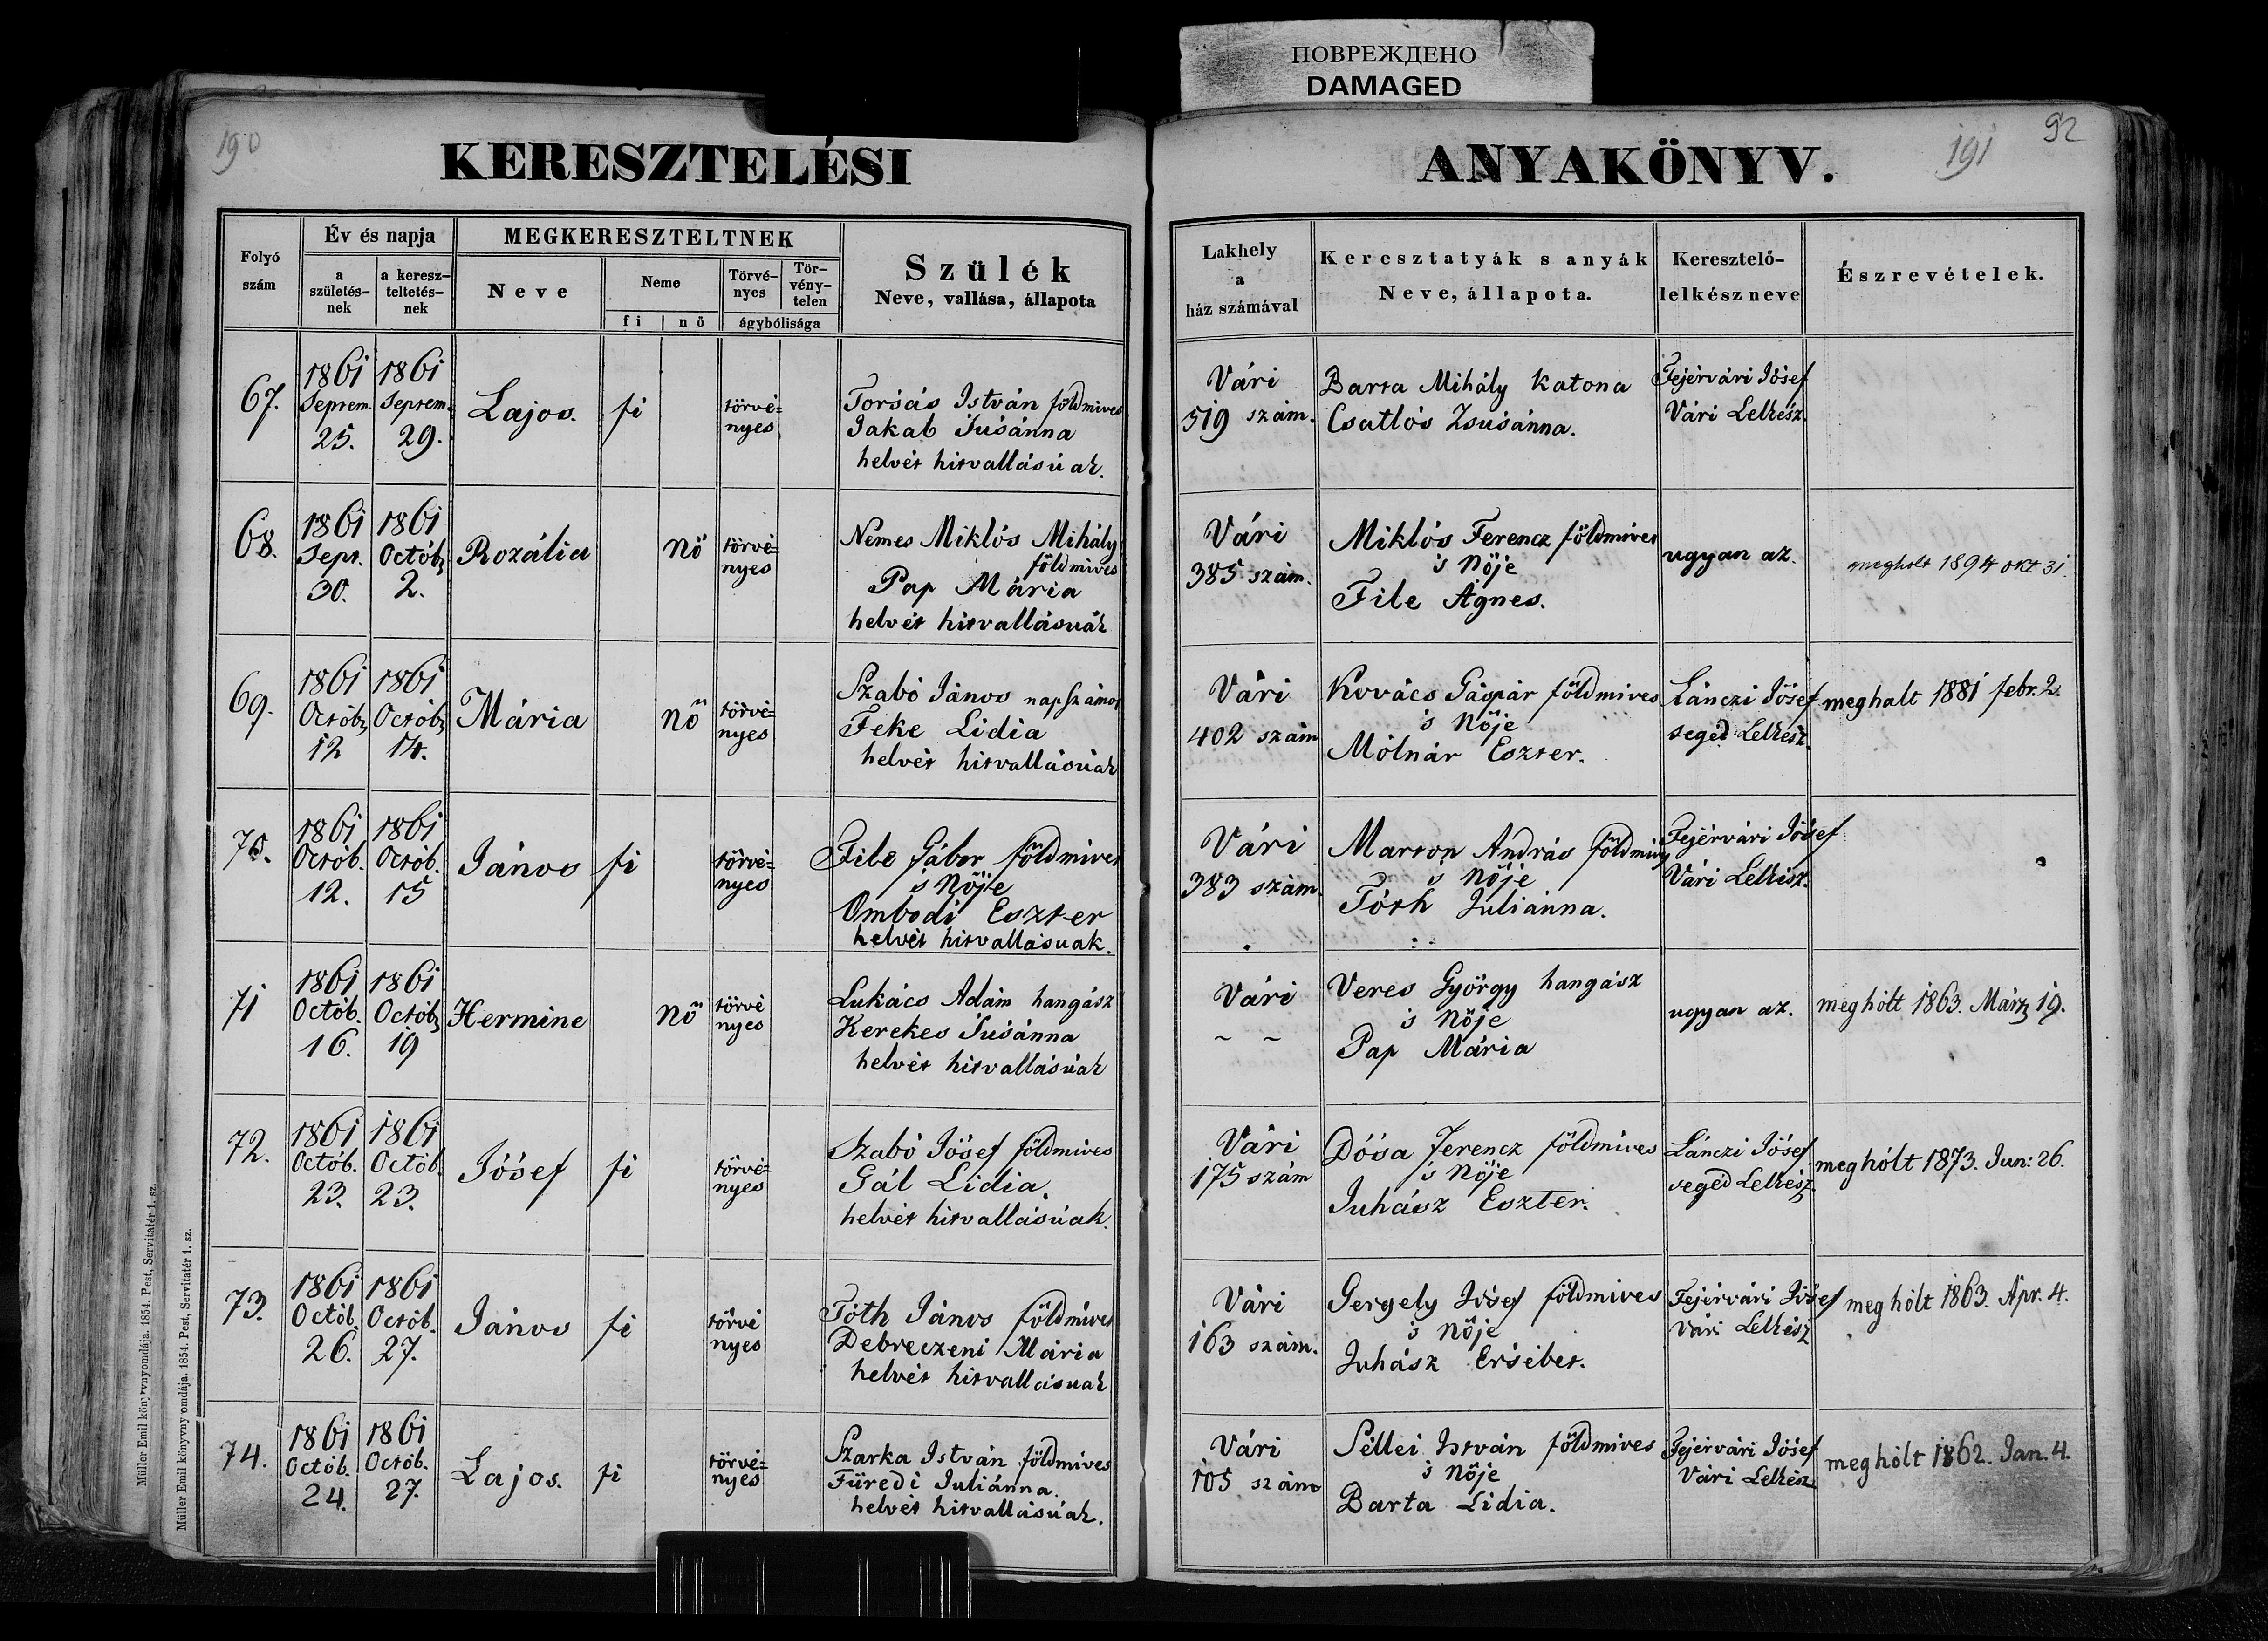 ПОВРЕЖДЕНО
DAMAGED
190
KERESZTELÉSI
ANYAKÖNYV.
191
92
Folyó szám
Év és napja
a születés-nek
a keresz-teltetés-nek
MEGKERESZTELTNEK
Neve
Neme
fi
nő
Törvé-nyes
Tör-vény-telen
ágybólisága
Szülék
Neve, vallása, állapota
Lakhely
a
ház számával
Keresztatyák s anyák
Neve, állapota.
Keresztelő-
lelkész neve
Észrevételek.
67.
1861 Septem. 25.
1861 Septem. 29.
Lajos.
fi
törvé=
nyes
Torsás István földmives
Jakab Susánna
helvét hitvallásúak.
Vári
519 szám.
Barta Mihály katona
Csatlós Zsusánna.
Fejérvári Jósef
Vári Lelkész.
68.
1861 Sept. 30.
1861 Octób, 2.
Rozália
nő
törvé=
nyes
Nemes Miklós Mihály
földmives
Pap Mária
helvét hitvallásuák
Vári
385 szám.
Miklós Ferencz földmives
's Nője
File Ágnes.
ugyan az.
megholt 1894 okt 31.
69.
1861 Octób, 12
1861 Octób, 14.
Mária
nő
törvé=
nyes
Szabó János napszámos
Feke Lidia
helvét hitvallásúak
Vári
402 szám
Kovács Gáspár földmives
's Nője
Mólnár Eszter.
Lánczi Jósef
segéd Lelkész.
meghalt 1881 febr. 2.
70.
1861 Octób. 12.
1861 Octób. 15
János
fi
törvé=
nyes
File Gábor földmives
's Nője
Ombodi Eszter
helvét hitvallásuak.
Vári
383 szám.
Marton András földmives
's Nője
Tóth Juliánna.
Fejérvári Jósef
Vári Lelkész.
71
1861 Octób. 16.
1861 Octób, 19
Hermine
nő
törvé
nyes
Lukács Adám hangász
Kerekes Susánna
helvét hitvallásúak
Vári
~ ~
Veres György hangász
's Nője
Pap Mária
ugyan az.
meghólt 1863. Márz 19.
72.
1861 Octób. 23.
1861 Octób. 23.
Jósef
fi
törvé=
nyes
Szabó Jósef földmives
Gál Lidia.
helvét hitvallásúak.
Vári
175 szám
Dósa Ferencz földmives
's Nője
Juhász Eszter.
Lánczi Jósef
segéd Lelkész.
meghólt 1873. Jun: 26.
73.
1861 Octób. 26.
1861 Octób. 27.
János
fi
törvé
nyes
Tóth János földmives
Debreczeni Mária
helvét hitvallásuak
Vári
163 szám.
Gergely Jósef földmives
's Nője
Juhász Ersébet.
Fejérvári Jósef
Vári Lelkész
meghólt 1863. Apr. 4.
74.
1861 Octób. 24.
1861 Octób. 27.
Lajos.
fi
törvé=
nyes
Szarka István földmives
Füredi Juliánna.
helvét hitvallásúak.
Vári
105 szám
Séllei István földmives
's Nője
Barta Lidia.
Fejérvári Jósef
Vári Lelkész
meghólt 1862. Jan. 4.
Müller Emil könyvnyomdája. 1854. Pest, Servitatér 1. sz.
Müller Emil könyvnyomdája. 1854. Pest, Servitatér 1. sz.